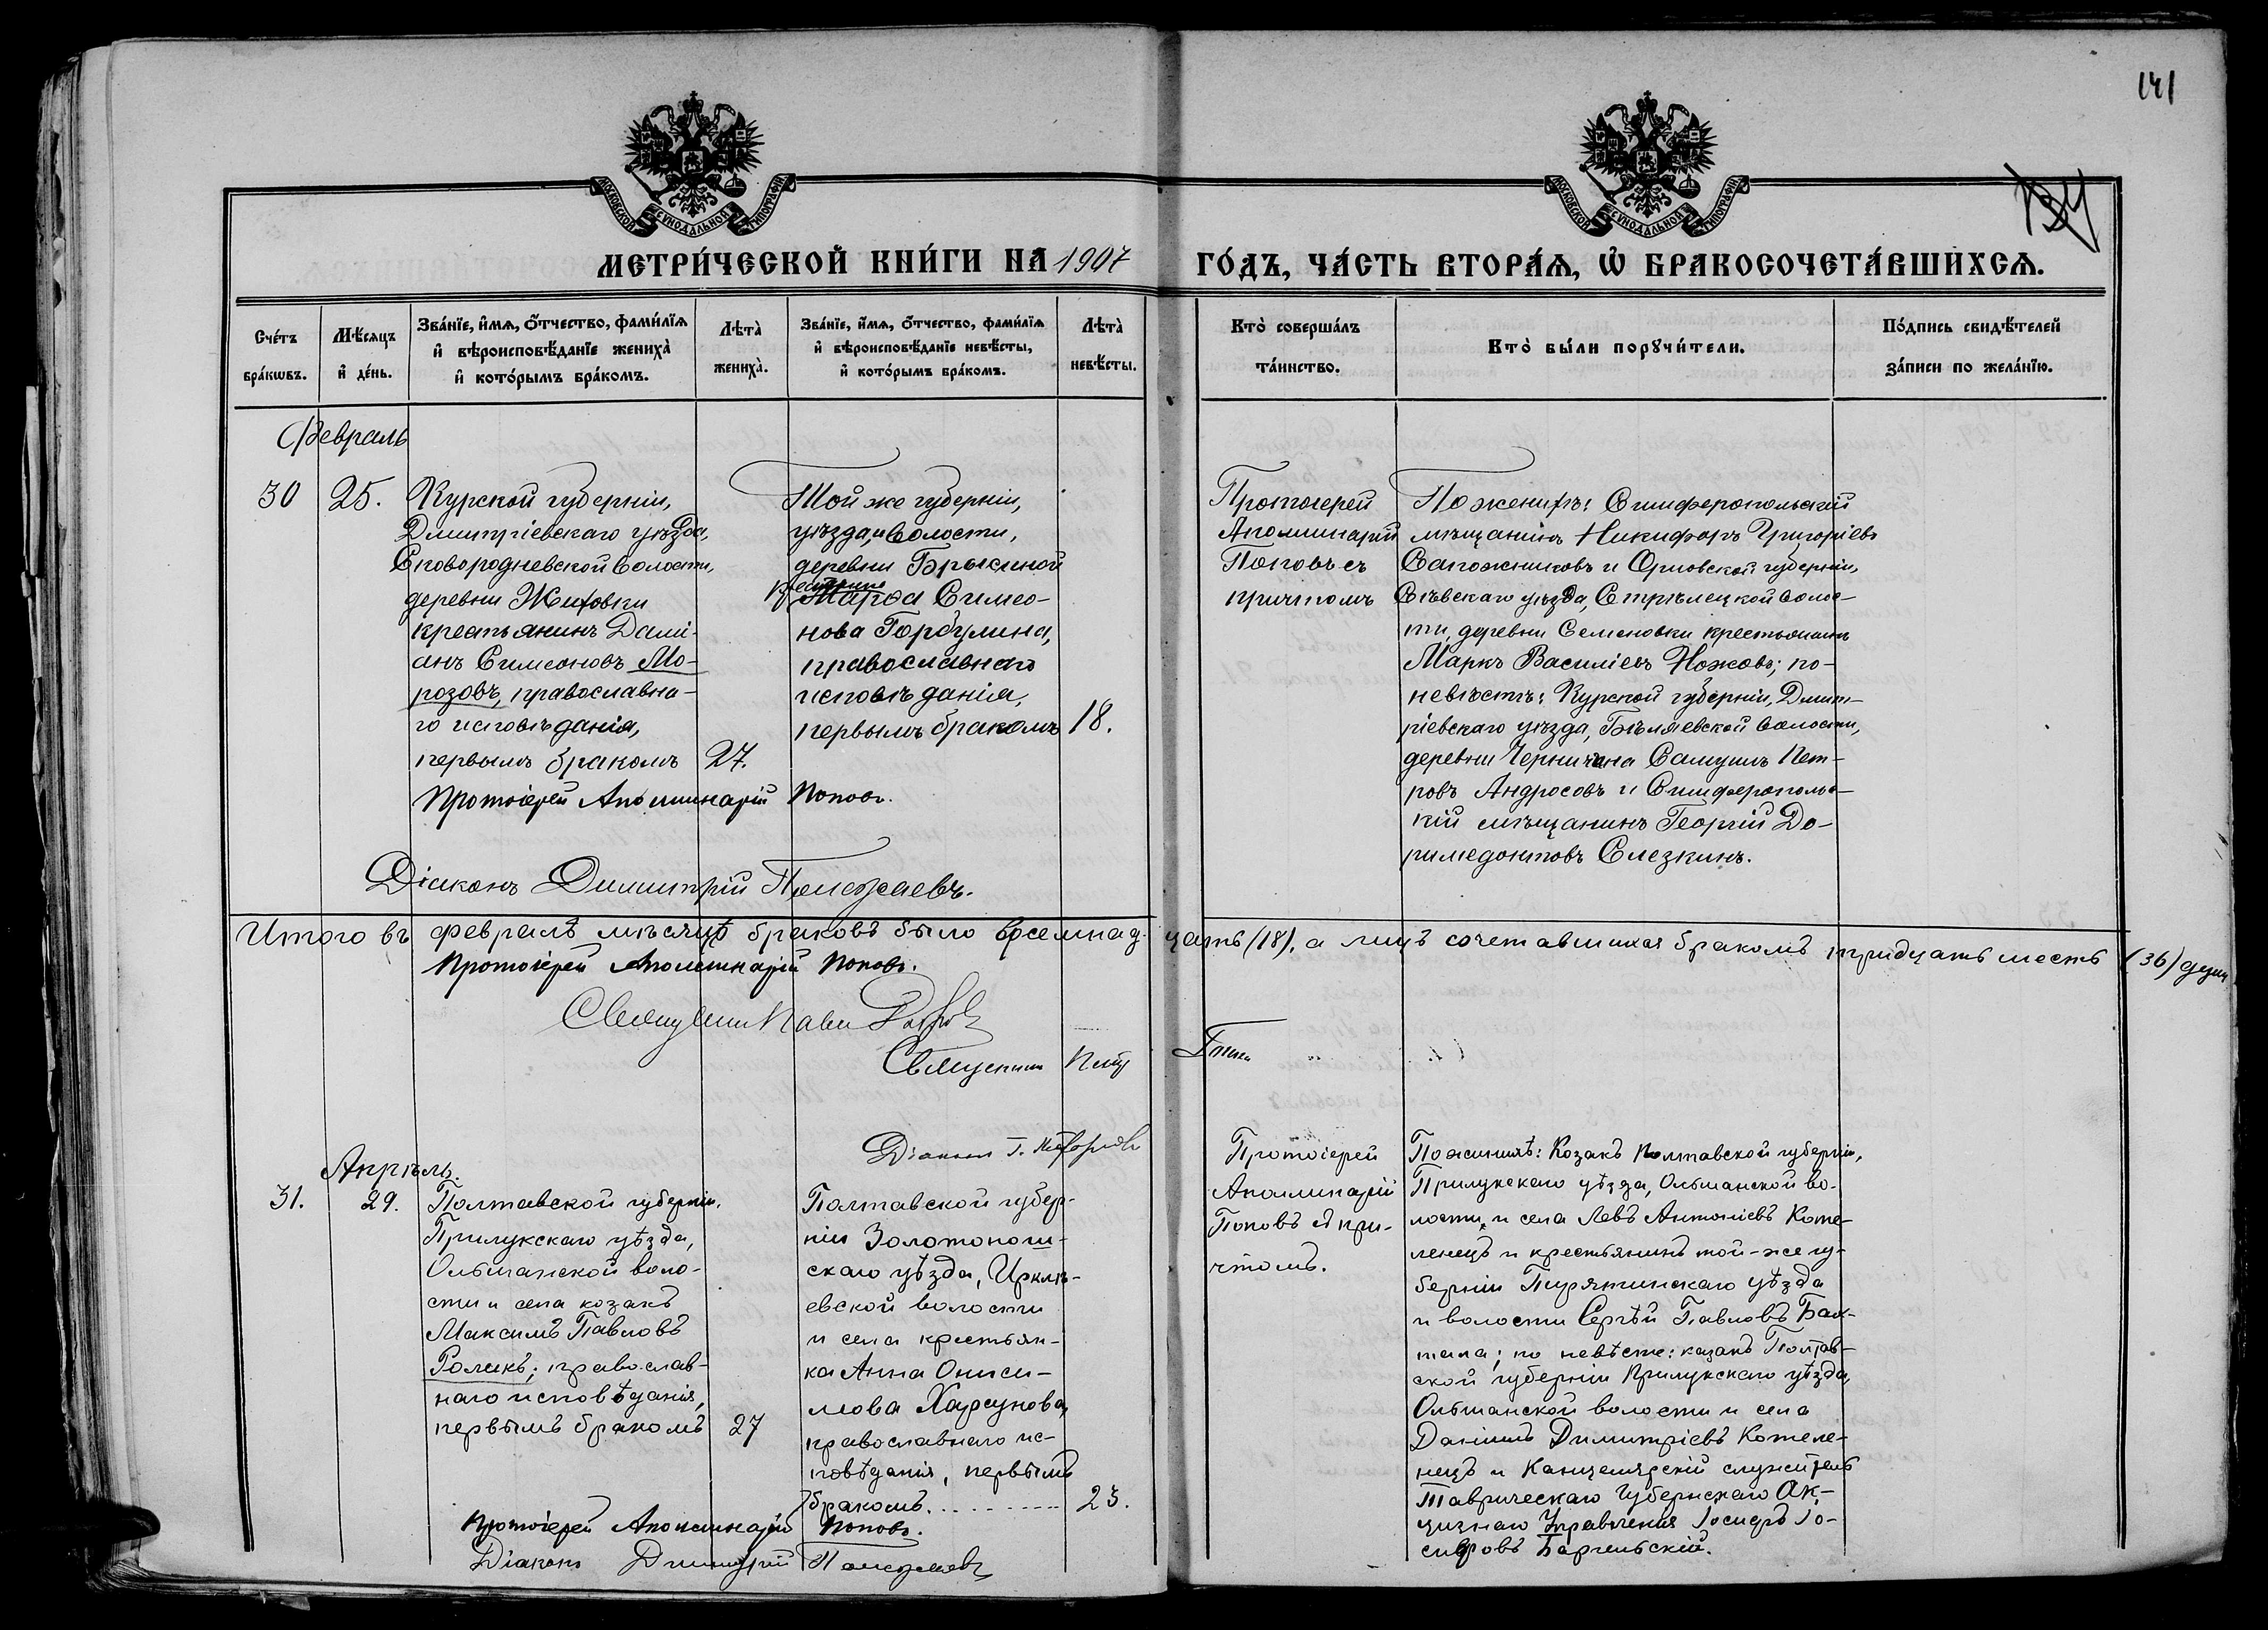 141
134
МОСКОВСКОЙ СѴНОДАЛЬНОЙ ТИПОГРАФІИ
МОСКОВСКОЙ СѴНОДАЛЬНОЙ ТИПОГРАФІИ
МЕТРИ́ЧЕСКОЙ КНИ́ГИ НА 1907 ГО́ДЪ, ЧА́СТЬ ВТОРА́Ѧ, Ѡ҆ БРАКОСОЧЕТА́ВШИХСѦ.
Сче́тъ
бра́кѡвъ.
Мѣ́сѧцъ
и҆ де́нь.
Зва́нїе, и҆́мѧ, ѻ҆́тчество, фами́лїѧ
и҆ вѣроисповѣ́данїе жениха̀
и҆ кото́рымъ бра́комъ.
Лѣта̀
жениха̀.
Зва́нїе, и҆́мѧ, ѻ҆́тчество, фами́лїѧ
и҆ вѣроисповѣ́данїе невѣ́сты,
и҆ кото́рымъ бра́комъ.
Лѣта̀
невѣ́сты.
Кто̀ соверша́лъ
та́инство.
Кто̀ бы́ли порꙋчи́тели.
По́дпись свидѣ́телей
за́писи по жела́нїю.
Февраль
30
25.
Курской губерніи,
Дмитріевскаго уѣзда,
Сковородневской волости,
деревни Жиховки
крестьянинъ Дамі-
анъ Симеоновъ Мо-
розовъ, православна-
го исповѣданія,
первымъ бракомъ
27.
Той же губерніи,
уѣзда, и волости,
деревни Брысиной
Марѳа Симео-
нова Горбулина,
православнаго
исповѣданія,
первымъ бракомъ
18.
Протоіерей
Аполлинарій
Поповъ съ
причтомъ
По женихѣ: Симферопольскій
мѣщанинъ Никифоръ Григоріевъ
Сапожниковъ и Орловской губерніи,
Сѣвскаго уѣзда, Стрѣлецкой волос-
ти, деревни Семеновки крестьянинъ
Маркъ Василіевъ Ножовъ; по-
невѣстѣ: Курской губерніи, Дмит-
ріевскаго уѣзда, Бѣляевской волости,
деревни Самуилъ Пет-
ровъ Андросовъ и Симферопольс-
кій мѣщанинъ Георгій До-
римедонтовъ Слезкинъ.
Протоіерей Аполлинарій Поповъ.
Діаконъ Димитрій Полежаевъ.
Итого въ февралѣ мѣсяцѣ браковъ было восемнад-цать (18), а лицъ сочетавшихся бракомъ тридцать шесть (36) душъ
Протоіерей Аполлинарій Поповъ.
Священникъ
Священникъ Петр
Діаконъ Г.
Апрѣль.
31.
29.
Полтавской губерніи,
Прилукскаго уѣзда,
Ольшанской воло-
сти и села козакъ
Максимъ Павловъ
Роликъ; православ-
наго исповѣданія,
первымъ бракомъ
27
Полтавской губер-
ніи Золотонош-
скаго уѣзда, Ирклѣ-
евской волости
и села крестьян-
ка Анна Ониси-
мова Харсунова,
православнаго ис-
повѣданія, первымъ
бракомъ. . . . . . . . . .
23.
Протоіерей
Аполлинарій
Поповъ съ при-
чтомъ.
По женихѣ: Козакъ Полтавской губерніи,
Прилукскаго уѣзда, Ольшанской во-
лости и села Левъ Антоніевъ Коте-
ленецъ и крестьянинъ той-же гу-
берніи Пирятинскаго уѣзда
и волости Сергѣй Павловъ Бак-
; по невѣсте: казакъ Полтав-
ской губерніи Прилукскаго уѣзда,
Ольшанской волости и села
Даніилъ Димитріевъ Котеле-
нецъ и Канцелярскій служитель
Таврическаго Губернскаго Ак-
цизнаго Управленія Іосифъ Іо-
сифовъ
Протоіерей Аполлинарій Поповъ.
Діаконъ Димитрій Полежаевъ